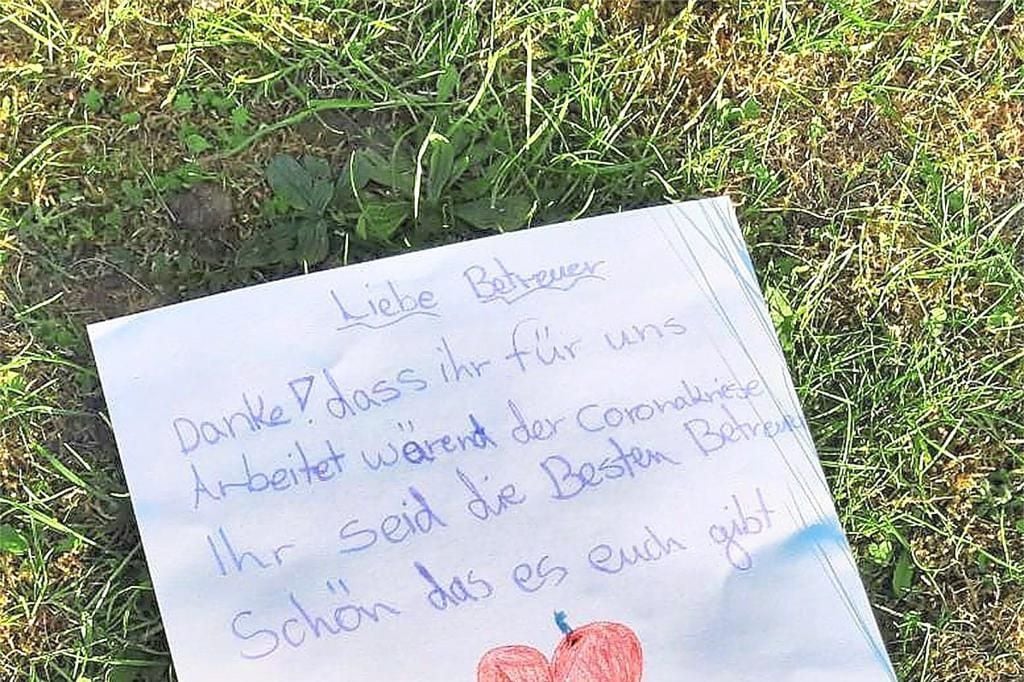 Liebe Betreuer
Danke! dass ihr für uns
Arbeitet wärend der Coronakriese
Ihr seid die Besten Betreuer
Schön das es euch gibt